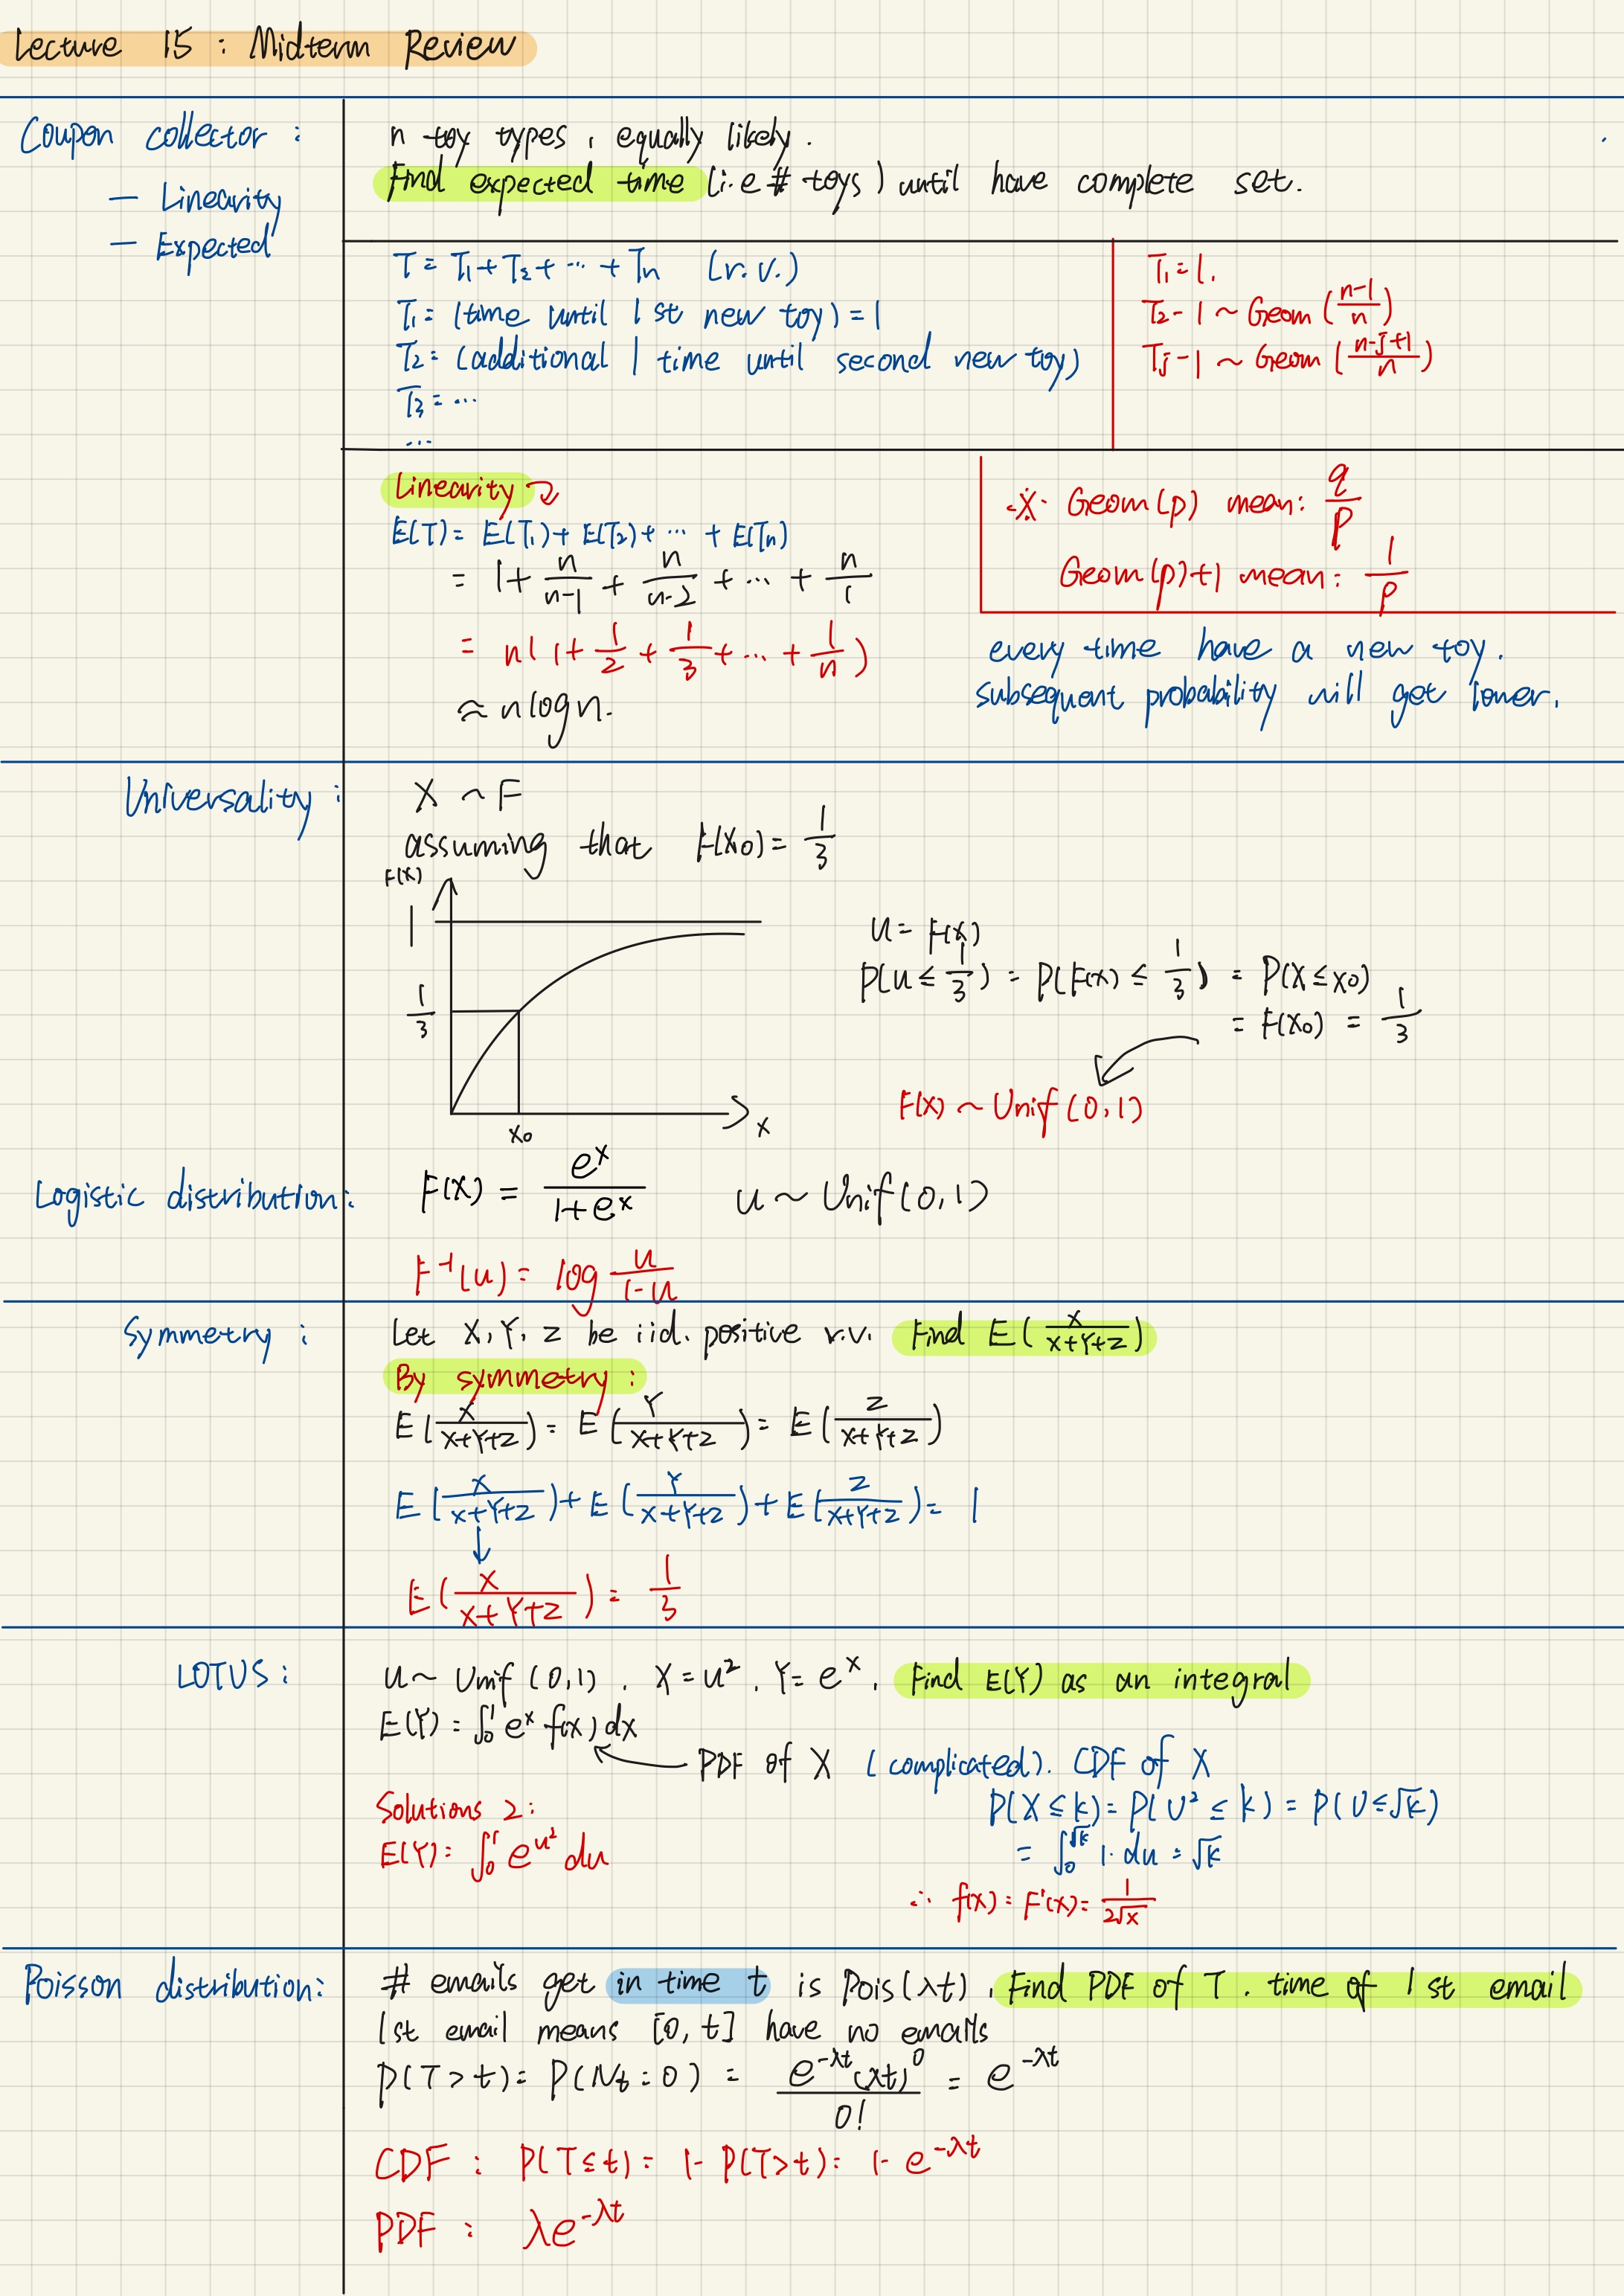 Lecture 15 : Midterm Review
Coupon collector :
— Linearity
— Expected
n toy types, equally likely.
Find expected time (i.e # toys) until have complete set.
T = T₁ + T₂ + ⋯ + Tn (r.v.)
T₁ = (time until 1st new toy) = 1
T₂ = (additional 1 time until second new toy)
T₃ = ⋯
⋯
T₁ = 1.
T₂ - 1 ~ Geom (n-1/n)
Tj - 1 ~ Geom (n-j+1/n)
Linearity
E(T) = E(T₁) + E(T₂) + ⋯ + E(Tn)
= 1 + n/n-1 + n/n-2 + ⋯ + n/1
= n(1 + 1/2 + 1/3 + ⋯ + 1/n)
≈ n log n.
※ Geom(p) mean: q/p
Geom(p)+1 mean: 1/p
every time have a new toy.
subsequent probability will get lower.
Universality :
X ~ F
assuming that F(x₀) = 1/3
F(x)
1
1/3
x₀
x
u = F(x)
P(u ≤ 1/3) = P(F(x) ≤ 1/3) = P(X ≤ x₀)
= F(x₀) = 1/3
F(x) ~ Unif(0,1)
Logistic distribution:
F(x) = eˣ/1+eˣ u ~ Unif(0,1)
F⁻¹(u) = log u/1-u
Symmetry :
Let X, Y, Z be iid. positive r.v. Find E(X/X+Y+Z)
By symmetry :
E(X/X+Y+Z) = E(Y/X+Y+Z) = E(Z/X+Y+Z)
E(X/X+Y+Z) + E(Y/X+Y+Z) + E(Z/X+Y+Z) = 1
E(X/X+Y+Z) = 1/3
LOTUS :
u ~ Unif(0,1). X = u². Y = eˣ. Find E(Y) as an integral
E(Y) = ∫₀¹ eˣ f(x) dx
PDF of X (complicated). CDF of X
P(X ≤ k) = P(U² ≤ k) = P(U ≤ √k)
= ∫₀^√k 1· du = √k
∴ f(x) = F'(x) = 1/2√x
Solutions 2:
E(Y) = ∫₀¹ e^u² du
Poisson distribution:
# emails get in time t is Pois(λt). Find PDF of T. time of 1st email
1st email means [0, t] have no emails
P(T > t) = P(Nt = 0) = e^-λt (λt)⁰/0! = e^-λt
CDF : P(T ≤ t) = 1- P(T > t) = 1- e^-λt
PDF : λe^-λt